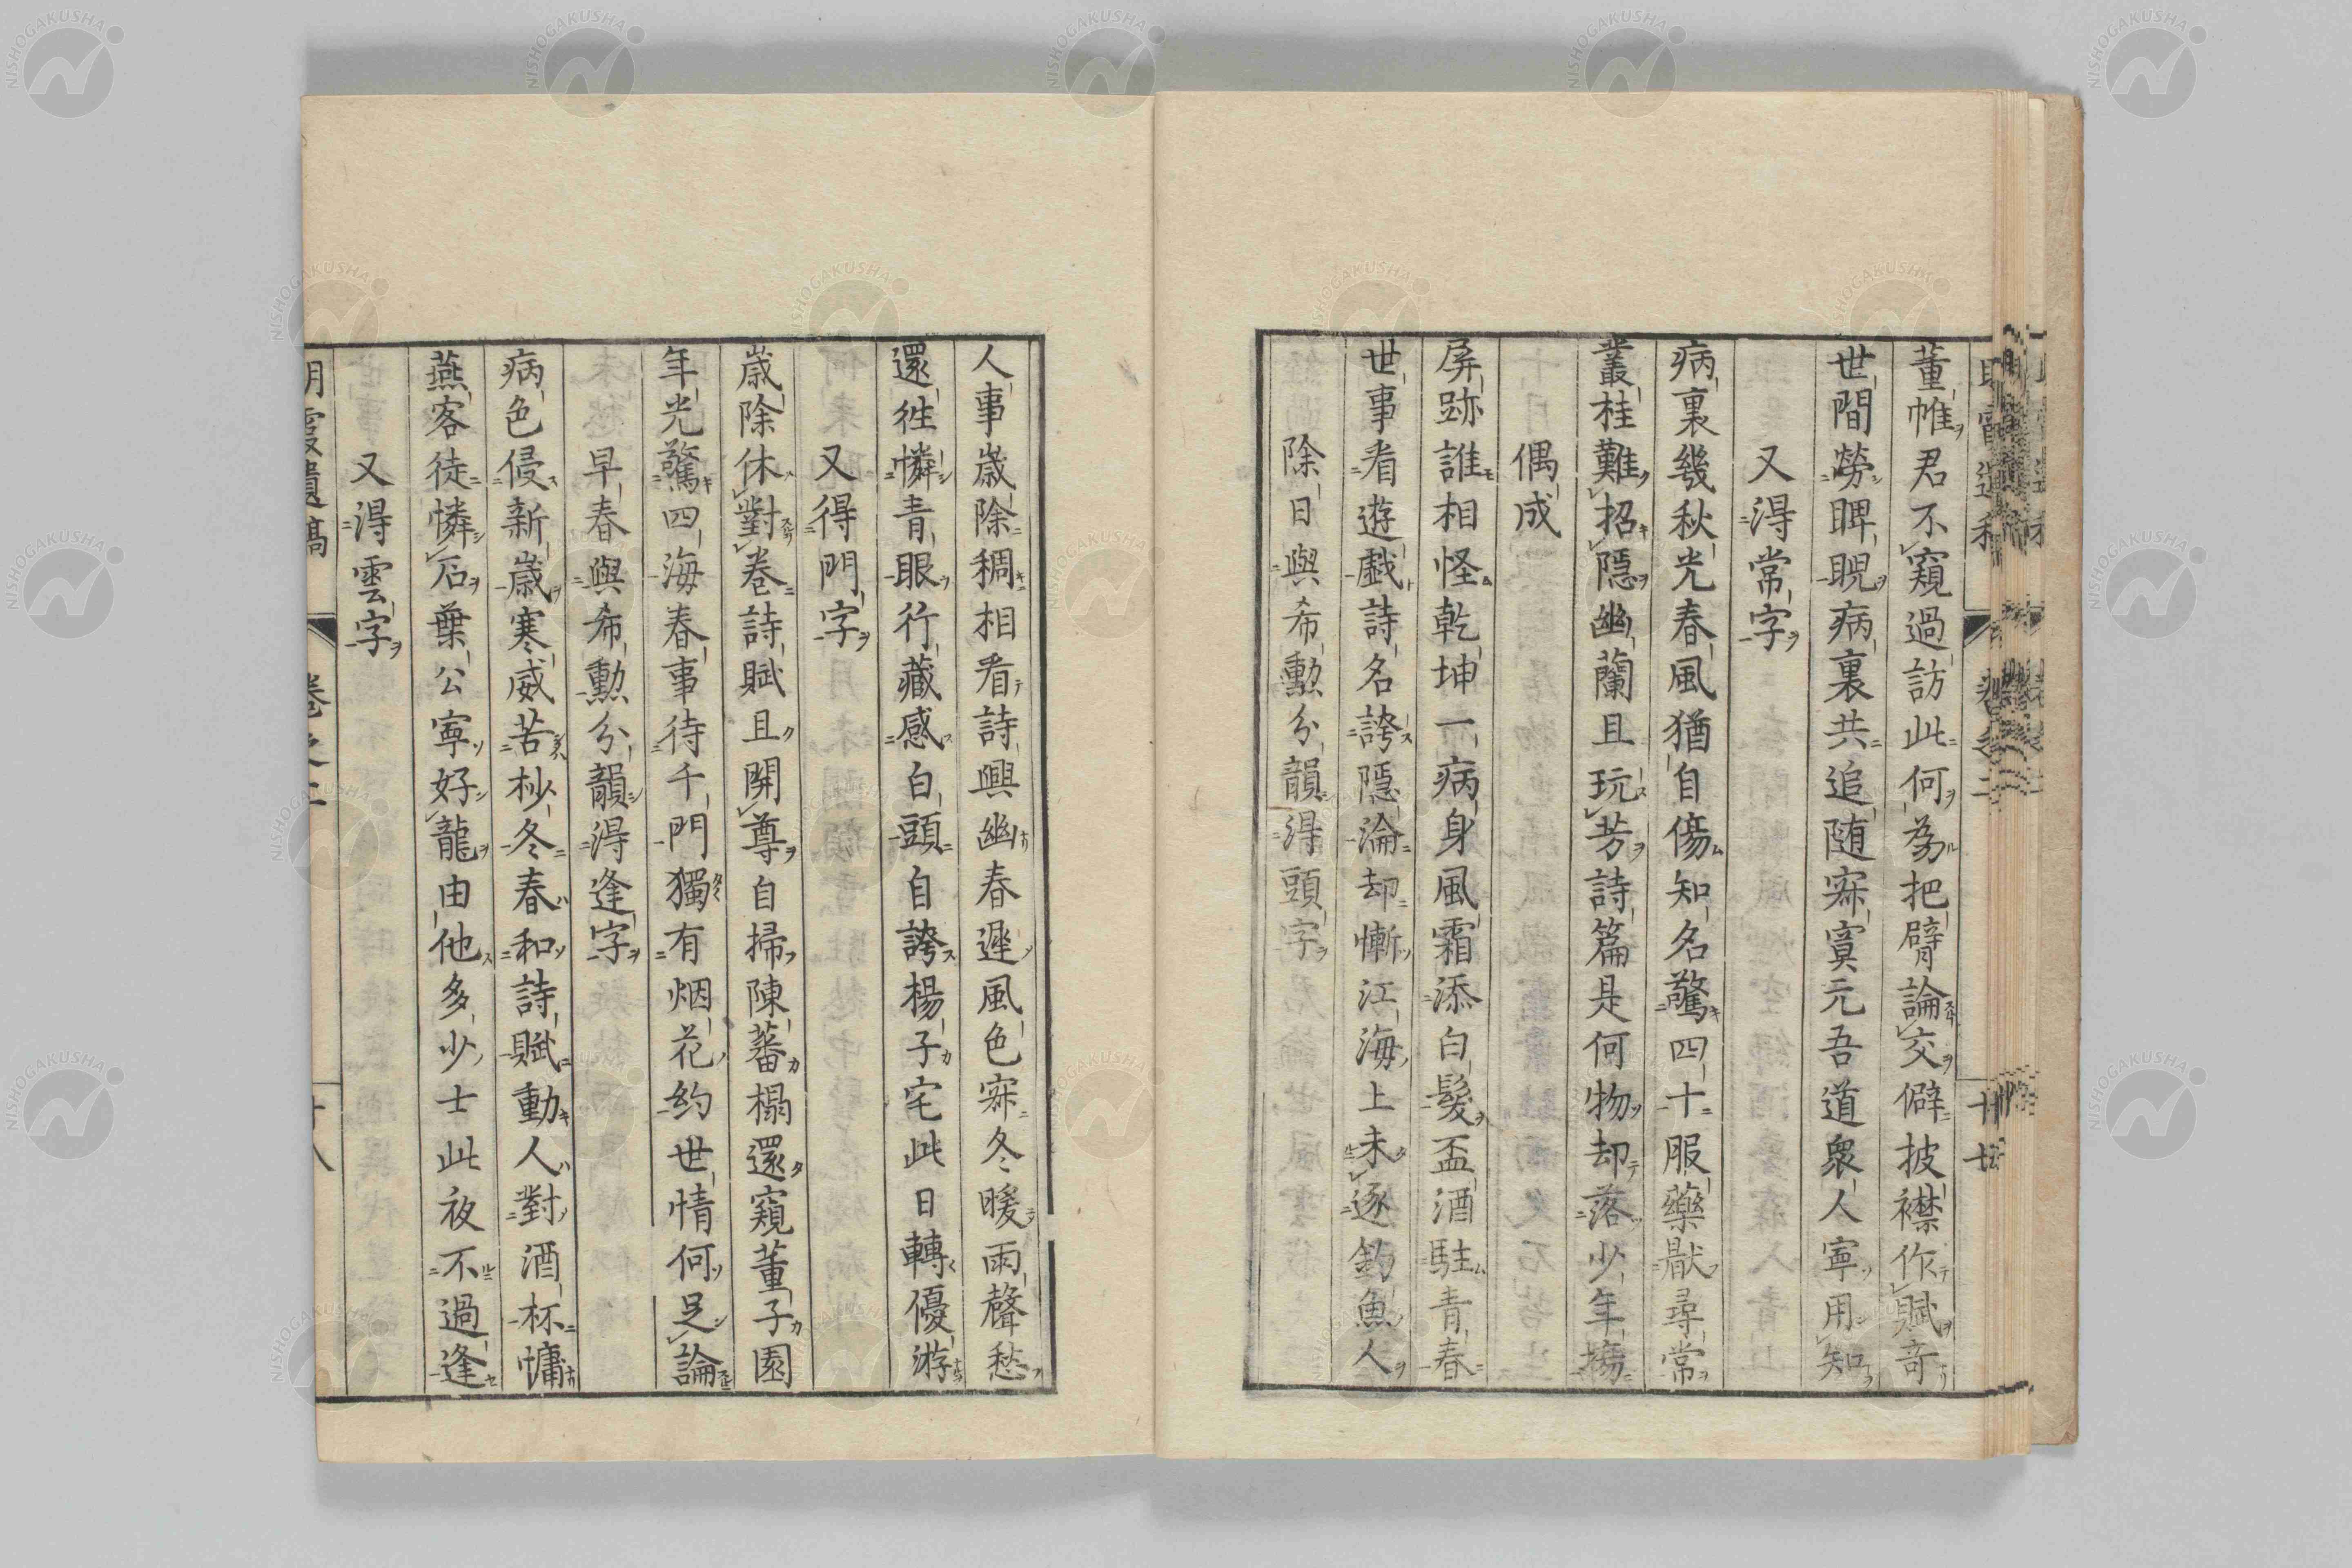 董帷君不窺過訪此何為把臂論交僻披襟作賦奇
世間勞睥睨病裏共追随寂寞元吾道衆人寧用知
又得常字
病裏幾秋光春風猶自傷知名驚四十服藥厭尋常
叢桂難招隠幽蘭且玩芳詩篇是何物却落少年塲
偶成
屏跡誰相怪乾坤一病身風霜添白髮盃酒駐青春
世事看遊戯詩名誇隠淪却慚江海上未逐釣魚人
除日與希勳分韻得頭字
人事歳除稠相看詩興幽春遲風色寂冬暖雨聲愁
還徃憐青眼行藏感白頭自誇楊子宅此日轉優游
又得門字
歳除休對卷詩賦且開尊自掃陳蕃榻還窺董子園
年光驚四海春事待千門獨有烟花約世情何足論
早春與希勳分韻得逢字
病色侵新歳寒威苦杪冬春和詩賦動人對酒杯慵
燕客徒憐石葉公寧好龍由他多少士此夜不過逢
又得雲字
卷之二
十八
NISHOGAKUSHA